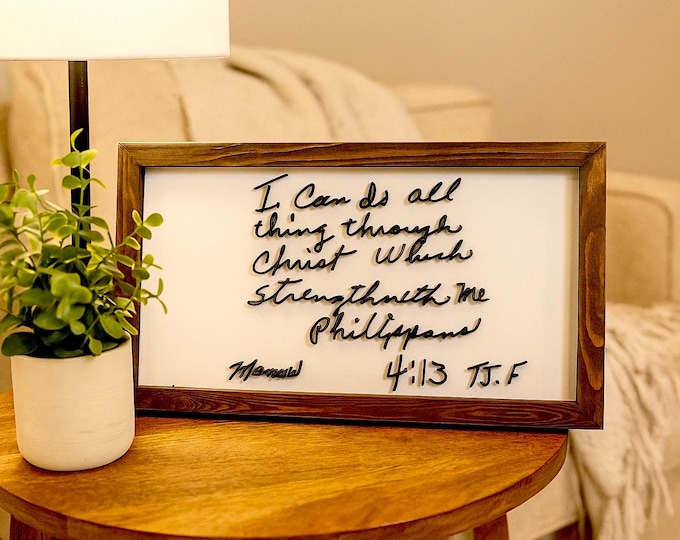 I Can do all
thing through
Christ Which
Strengthneth Me
Philippans
4:13 TJ.F